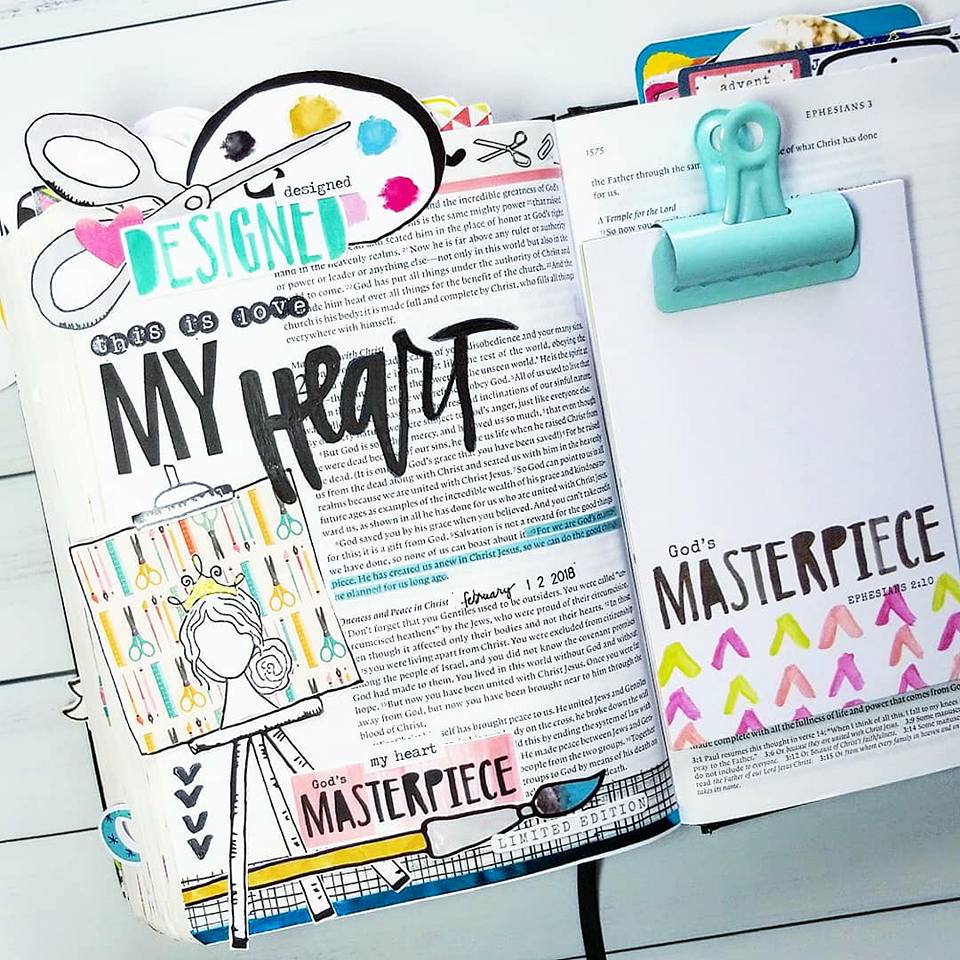 designed
DESIGNED
this is love
MY Heart
and the incredible greatness of God's
is the same mighty power 20 that raised
and seated him in the place of honor at God's right
hand in the heavenly realms. 21 Now he is far above any ruler or authority
or power or leader or anything else—not only in this world but also in the
to come. 22 God has put all things under the authority of Christ and
made him head over all things for the benefit of the church. 23 And the
church is his body; it is made full and complete by Christ, who fills all things
everywhere with himself.
with Christ
disobedience and your many sins.
the rest of the world, obeying the
unseen world. He is the spirit at
obey God. 3 All of us used to live that
inclinations of our sinful nature.
God's anger, just like everyone else.
4 But God is so mercy, and loved us so much, 5 that even though
we were dead because our sins, he us life when he raised Christ from
the dead. (It is only God's grace that you have been saved!) 6 For he raised
us from the dead along with Christ and seated us with him in the heavenly
realms because we are united with Christ Jesus. 7 So God can point to us in all
future ages as examples of the incredible wealth of his grace and kindness
ward us, as shown in all he has done for us who are united with Christ Jesus.
8 God saved you by his grace when you believed. And you can't take credit
for this; it is a gift from God. 9 Salvation is not a reward for the good things
we have done, so none of us can boast about it. 10 For we are God's
piece. He has created us anew in Christ Jesus, so we can do the good things
he planned for us long ago.
february 12 2018
Oneness and Peace in Christ
Don't forget that you Gentiles used to be outsiders. You were called "un-
circumcised heathens" by the Jews, who were proud of their circumcision,
though it affected only their bodies and not their hearts. 12 In those
you were living apart from Christ. You were excluded from citizenship
among the people of Israel, and you did not know the covenant promises
God had made to them. You lived in this world without God and without
hope. 13 But now you have been united with Christ Jesus. Once you were far
away from God, but now you have been brought near to him through the
blood of Christ.
self has brought peace to us. He united Jews and Gentiles
on the cross, he broke down the wall
this by ending the system of law with
He made peace between Jews and Gen-
people from the two groups. 16 Together
groups to God by means of his death on
death.
my heart
God's
MASTERPIECE
LIMITED EDITION
advent
1575
EPHESIANS 3
the Father through the same of what Christ has done
for us.
A Temple for the Lord
19 So now you
God's
MASTERPIECE
EPHESIANS 2:10
made complete with all the fullness of life and power that comes from God.
3:1 Paul resumes this thought in verse 14: "When I think of all this, I fall to my knees
pray to the Father." 3:6 Or because they are united with Christ Jesus. 3:9 Some manuscripts
do not include to everyone. 3:12 Or Because of Christ's faithfulness. 3:14 Some manuscripts
read the Father of our Lord Jesus Christ. 3:15 Or from whom every family in heaven and
takes its name.